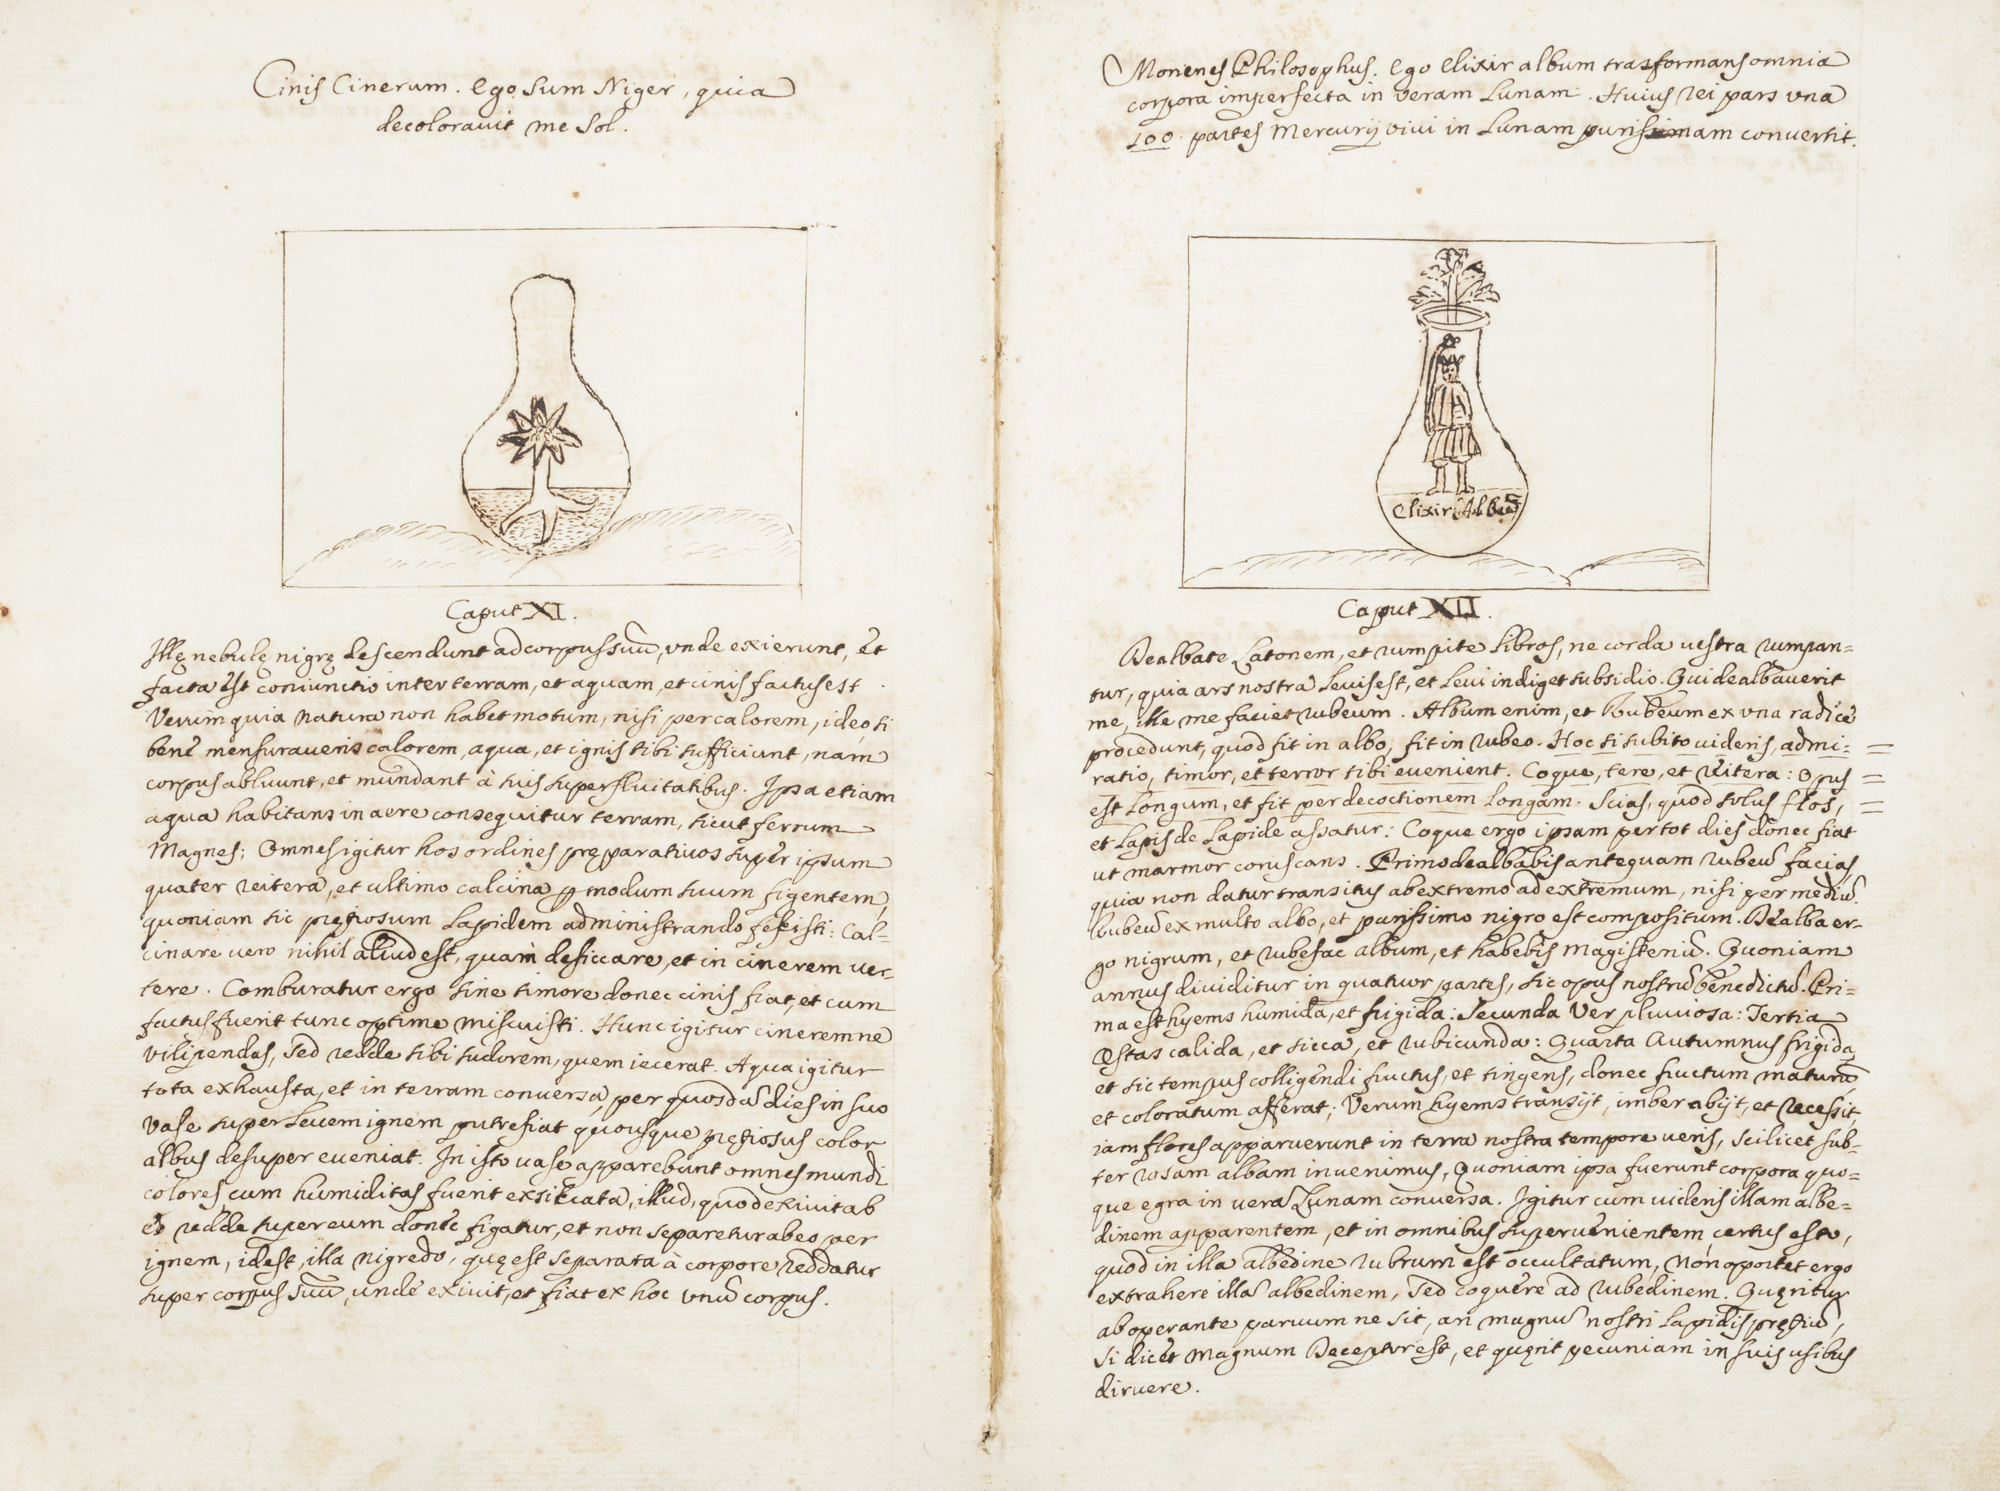 Cinis Cinerum. Ego Sum Niger, quia
decolorauit me Sol.
Caput XI.
Illę nebulę nigrę descendunt ad corpus suũ, unde exierunt, et
facta est coniunctio inter terram, et aquam, et cinis factus est.
Verum quia natura non habet motum, nisi per calorem, ideo si
bene mensuraueris calorem, aqua, et ignis tibi sufficiunt, nam
corpus abluunt, et mundant à suis superfluitatibus. Ipsa etiam
aqua habitans in aere consequitur terram, sicut ferrum
Magnes; Omnes igitur hos ordines pręparatiuos super ipsum
quater reitera, et ultimo calcina p modum suum figentem,
quoniam sic prętiosum Lapidem administrando fecisti: Cal=
cinare uero nihil aliud est, quam desiccare, et in cinerem uer=
tere. Comburatur ergo sine timore donec cinis fiat, et cum
factus fuerit tunc optime miscuisti. Hunc igitur cinerem ne
vilipendas, sed redde sibi sudorem, quem iecerat. Aqua igitur
tota exhausta, et in terram conuersa, per quosdã dies in suo
vase super leuem ignem putrefiat quousque prętiosus color
albus desuper eueniat. In isto uase apparebunt omnes mundi
colores, cum humiditas fuerit exsiccata, illud, quod exiuit ab
eo redde super eum donec figatur, et non separetur ab eo per
ignem, idest, illa nigredo, quę est separata à corpore reddatur
super corpus suũ, unde exiuit, et fiat ex hoc unũ corpus.
Morienes Philosophus. Ego Elixir album trasformans omnia
corpora imperfecta in veram Lunam. Huius rei pars una
100. partes Mercurij viui in Lunam purissimam conuertit.
Elixir Albũ
Caput XII.
Dealbate Latonem, et rumpite libros, ne corda uestra rumpan=
tur, quia ars nostra leuis est, et leui indiget subsidio. Qui dealbauerit
me, ille me faciet rubeum. Album enim, et Rubeum ex una radice
procedunt, quod fit in albo, fit in rubeo. Hoc si subito uideris, admi=
ratio, timor, et terror tibi euenient. Coque, tere, et reitera: Opus
est longum, et fit per decoctionem longam. Scias, quod solus flos,
et Lapis de Lapide assatur: Coque ergo ipsam per tot dies donec fiat
ut marmor coruscans. Primo dealbabis antequam rubeũ facias,
quia non datur transitus ab extremo ad extremum, nisi per mediũ.
Rubeũ ex multo albo, et purissimo nigro est compositum. Dealba er=
go nigrum, et rubefac album, et habebis Magisteriũ. Quoniam
annus diuiditur in quatuor partes, sic opus nostrũ benedictũ. Pri=
ma est hyems humida, et frigida: Secunda Ver pluuiosa: Tertia
Ęstas calida, et sicca, et rubicunda: Quarta Autumnus frigida,
et sic tempus colligendi fructus, et tingens, donec fructum maturũ,
et coloratum afferat; Verum hyems transijt, imber abijt, et recessit,
iam flores apparuerunt in terra nostra tempore ueris, scilicet sub=
ter rosam albam inuenimus, Quoniam ipsa fuerunt corpora quo=
que egra in verã Lunam conuersa. Igitur cum uideris illam albe=
dinem apparentem, et in omnibus superuenientem, certus esto,
quod in illa albedine rubrum est occultatum, Non oportet ergo
extrahere illã albedinem, sed coquere ad rubedinem. Quęritur
ab operante paruum ne sit, an magnũ nostri Lapidis prętiũ,
si dicet Magnum Deceptor est, et quęrit pecuniam in suis usibus
diruere.